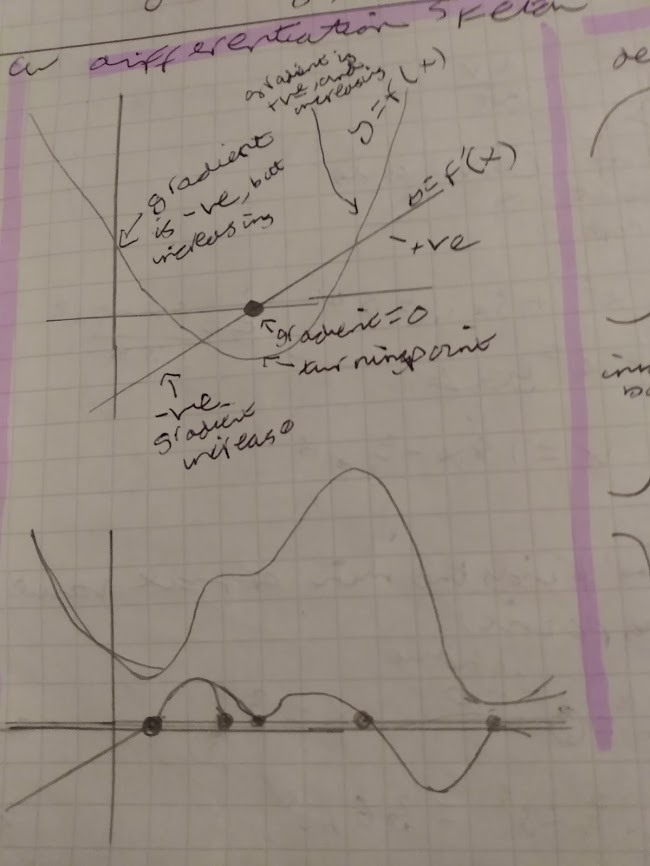 differentiation sketch
gradient is
+ve, and
increasing
y=f(x)
gradient
is -ve, but
increasing
y=f'(x)
+ve
gradient=0
turningpoint
-ve
gradient
increase
de